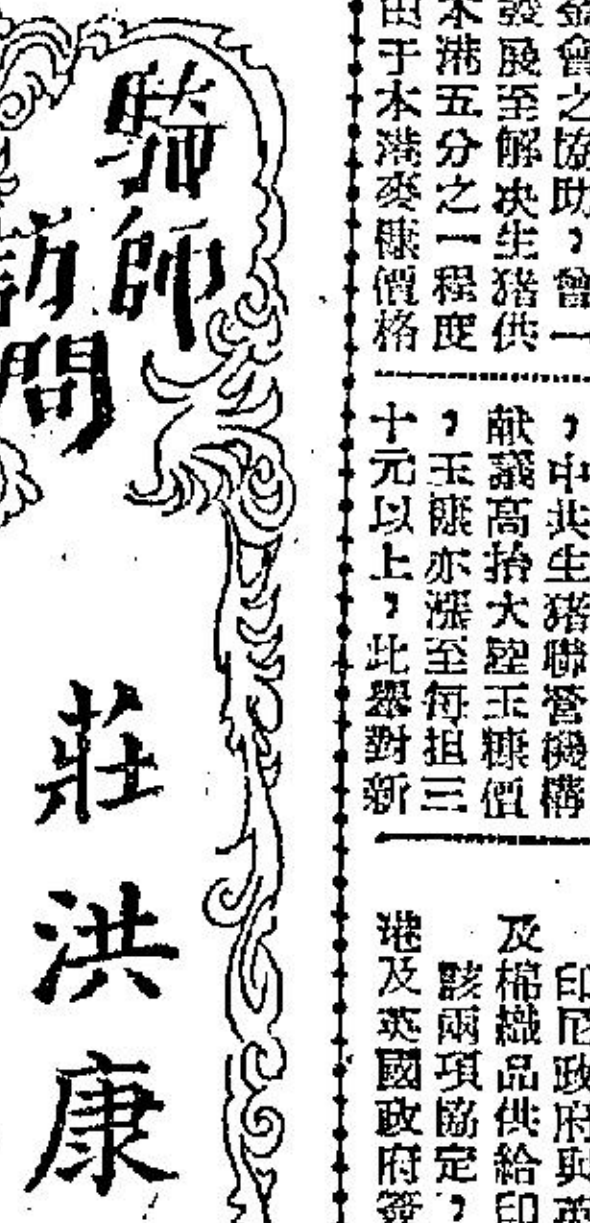 金會之協助，曾一
發展至解决生猪供
本港五分之一程度
由于本港麥糠價格
，中共生猪聯營機構
献議高抬大陸玉糠價
，玉糠亦漲至每担三
十元以上，此舉對新
印尼政府與英
及棉織品供給印
該兩項協定，
港及英國政府簽
騎師
訪問
莊洪康